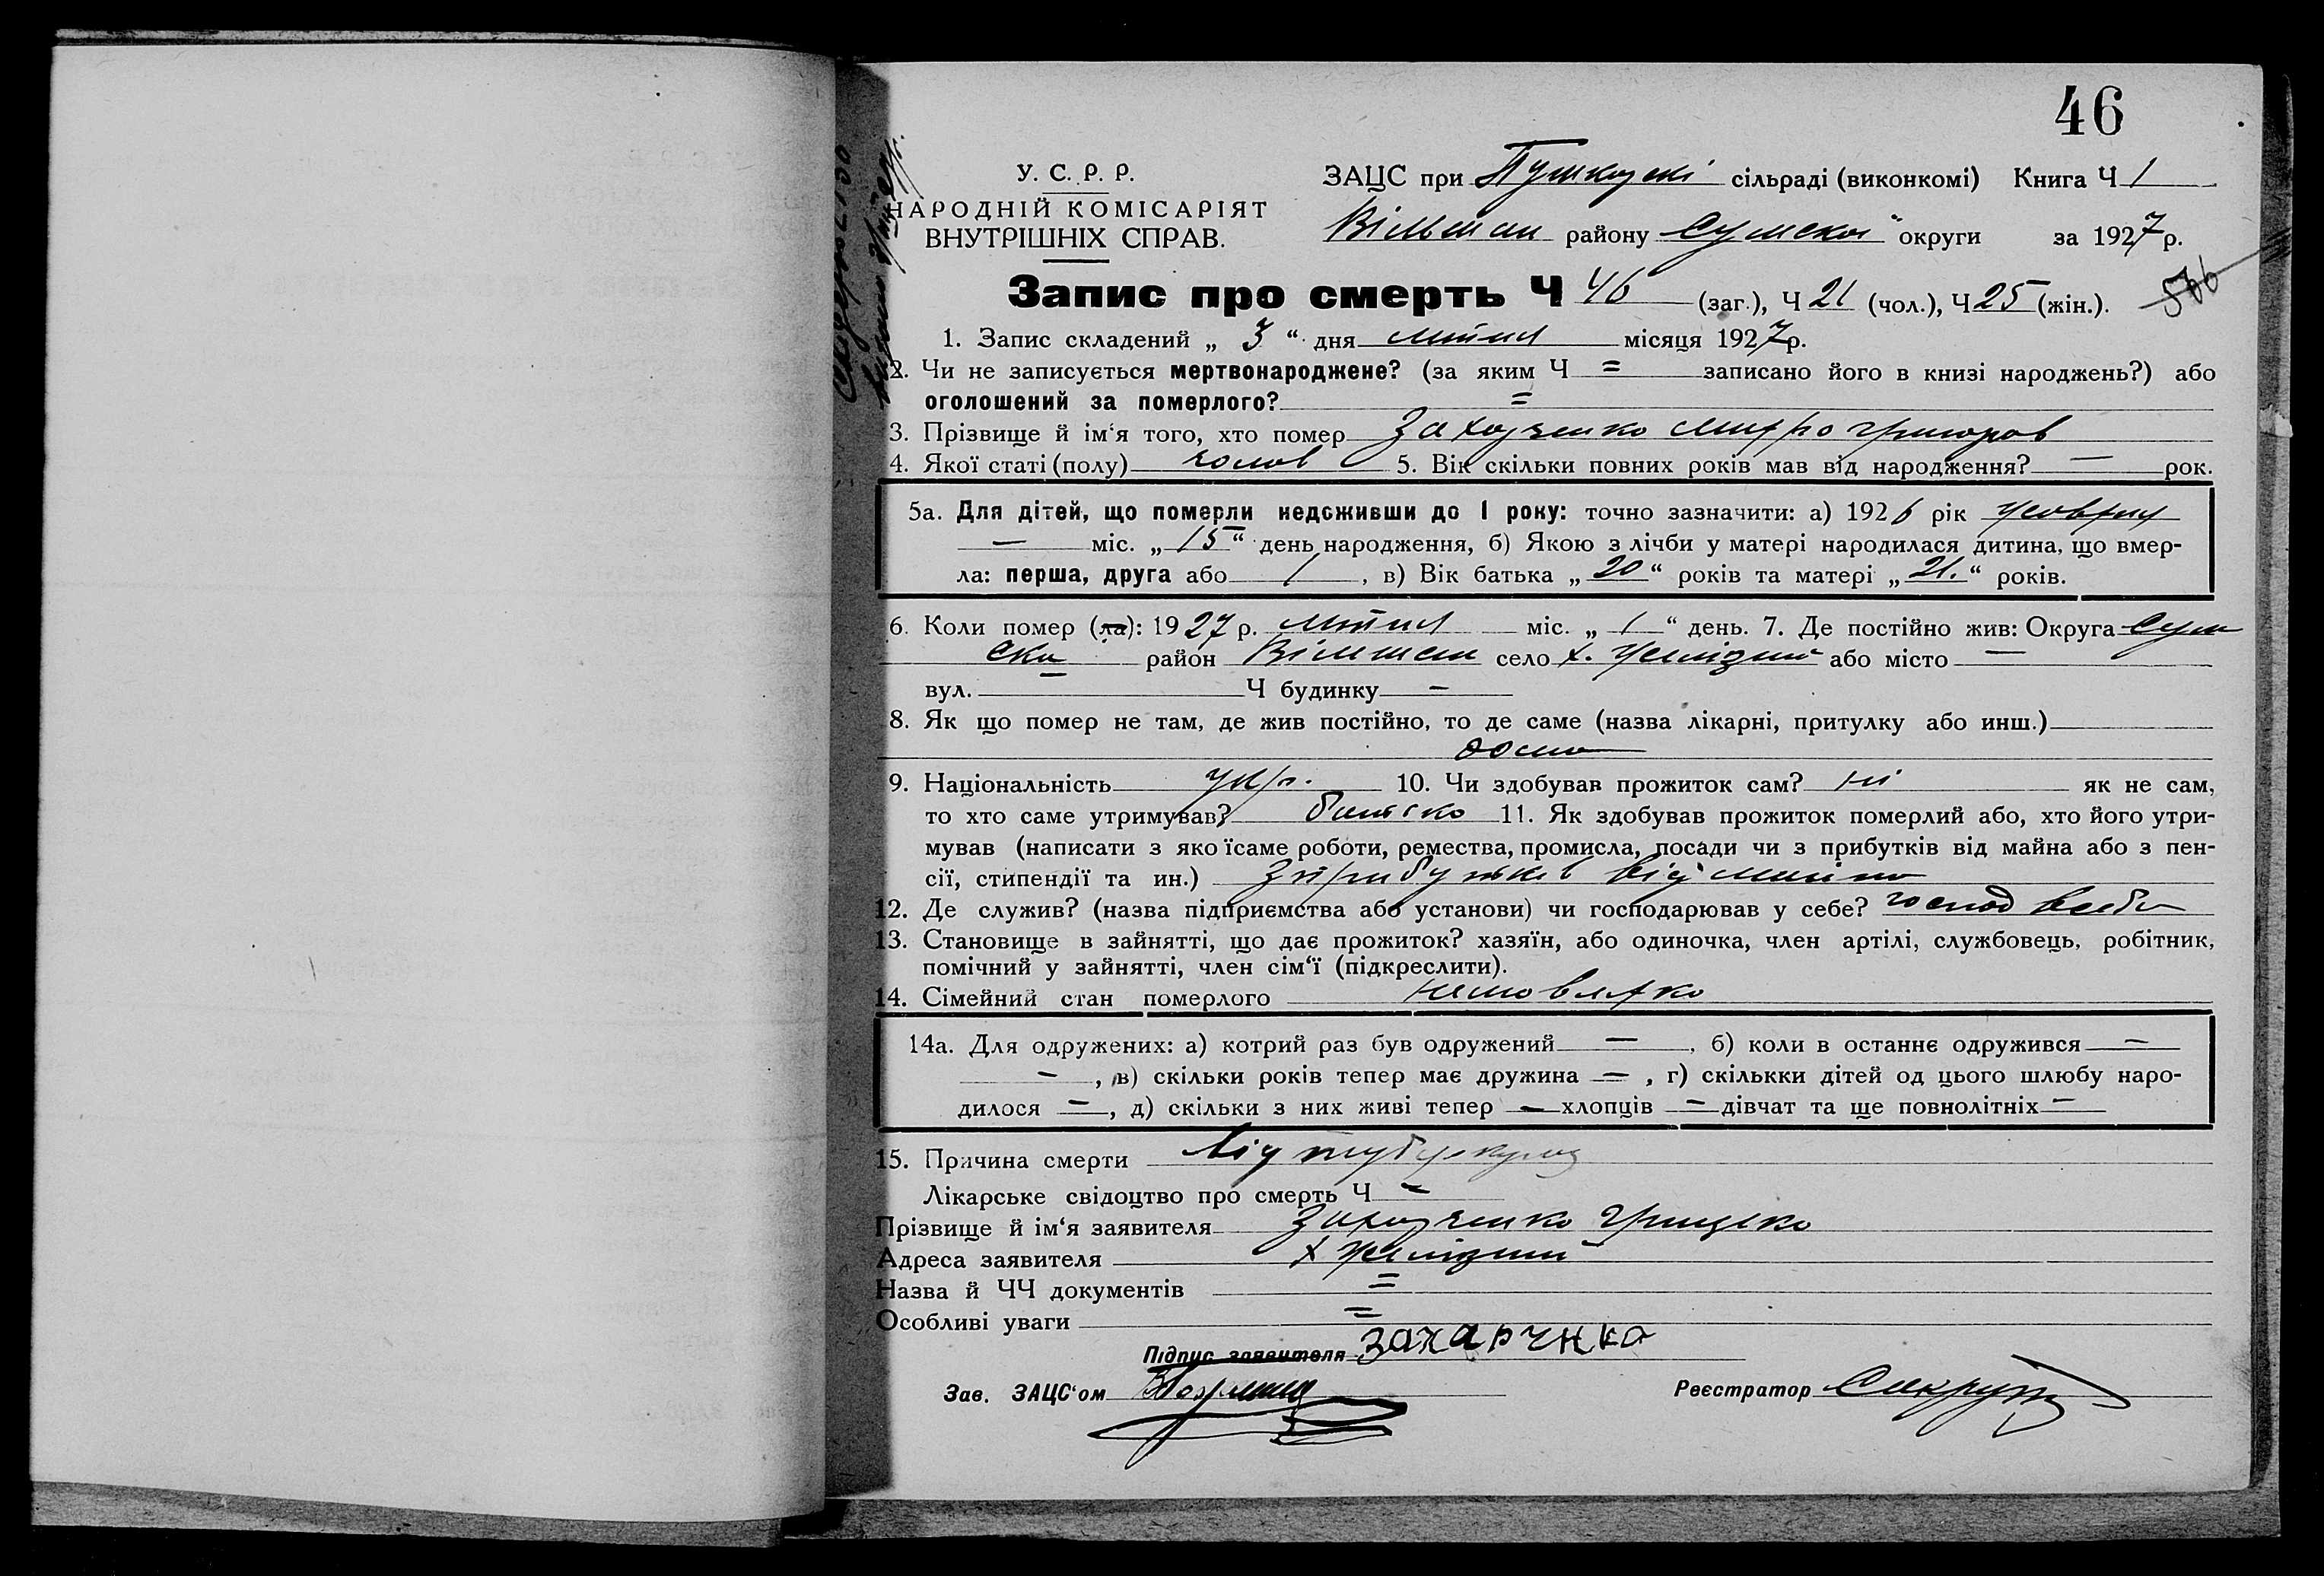 46
У. С. Р. Р.
НАРОДНІЙ КОМІСАРІЯТ
ВНУТРІШНІХ СПРАВ.
ЗАЦС при сільраді (виконкомі) Книга Ч 1
Вільшан району Сумской округи за 1927 р.
Запис про смерть Ч 46 (заг.), Ч 21 (чол.), Ч 25 (жін.).
566
1. Запис складений „ 3 “ дня липня місяця 1927 р.
2. Чи не записується мертвонароджене? (за яким Ч = записано його в книзі народжень?) або
оголошений за померлого? =
3. Прізвище й ім‘я того, хто помер Захарченко Григоров
4. Якої статі (полу) чолов 5. Вік скільки повних років мав від народження? — рок.
5а. Для дітей, що померли недоживши до 1 року: точно зазначити: а) 1926 рік жовтня
— міс. „ 15 “ день народження, б) Якою з лічби у матері народилася дитина, що вмер-
ла: перша, друга або 1, в) Вік батька „ 20 “ років та матері „ 21. “ років.
6. Коли помер (ла): 1927 р. липня міс. „ 1 “ день. 7. Де постійно жив: Округа Сум
ска район Вільшан село х. або місто —
вул. — Ч будинку —
8. Як що помер не там, де жив постійно, то де саме (назва лікарні, притулку або инш.)
дома
9. Національність укр. 10. Чи здобував прожиток сам? ні як не сам,
то хто саме утримував? батько 11. Як здобував прожиток померлий або, хто його утри-
мував (написати з якоїсаме роботи, ремества, промисла, посади чи з прибутків від майна або з пен-
сії, стипендії та ин.) З прибутків від майна
12. Де служив? (назва підприємства або установи) чи господарював у себе? господ в себе
13. Становище в зайнятті, що дає прожиток? хазяїн, або одиночка, член артілі, службовець, робітник,
помічний у зайнятті, член сім‘ї (підкреслити).
14. Сімейний стан померлого немовлятко
14а. Для одружених: а) котрий раз був одружений —, б) коли в останнє одружився —
—, в) скільки років тепер має дружина —, г) скількки дітей од цього шлюбу наро-
дилося —, д) скільки з них живі тепер — хлопців — дівчат та ще повнолітніх —
15. Причина смерти Від туберкульоз
Лікарське свідоцтво про смерть Ч —
Прізвище й ім‘я заявителя Захарченко Грицько
Адреса заявителя х
Назва й ЧЧ документів =
Особливі уваги =
Підпис заявителя захарчнко
Зав. ЗАЦС‘ом
Реєстратор